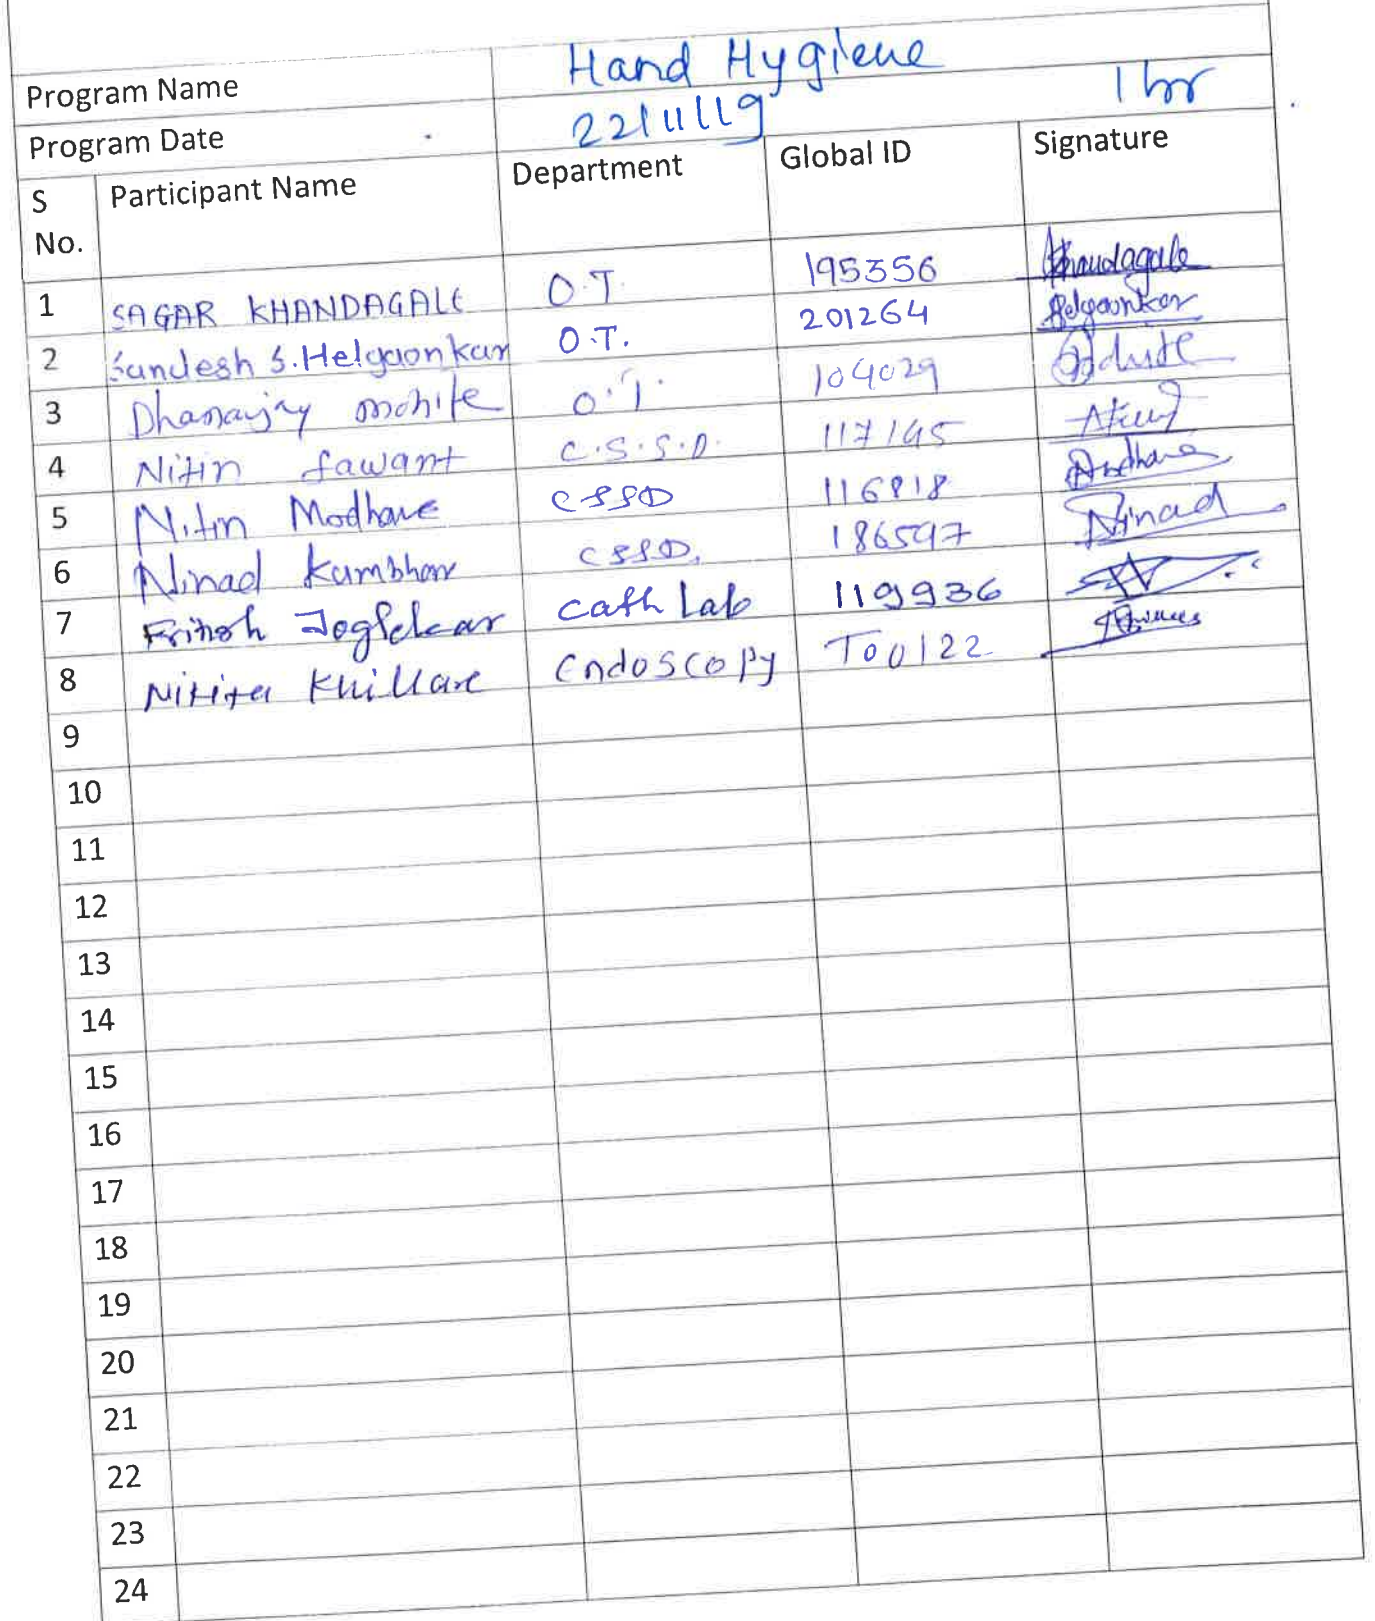 Program Name Hand Hygiene
Program Date 22/11/19 1 hr
S No. Participant Name Department Global ID Signature
1 SAGAR KHANDAGALE O.T. 195356 Khandagale
2 Sandesh S. Helgaonkar O.T. 201264 Helgaonkar
3 Dhananjay mohite O.T. 104029
4 Nitin Sawant C.S.S.D. 117145
5 Nitin Modhave CSSD 116818
6 Ninad Kumbhar CSSD. 186597 Ninad
7 Joglekar Cath Lab 119936
8 Khillare Endoscopy T00122
9
10
11
12
13
14
15
16
17
18
19
20
21
22
23
24